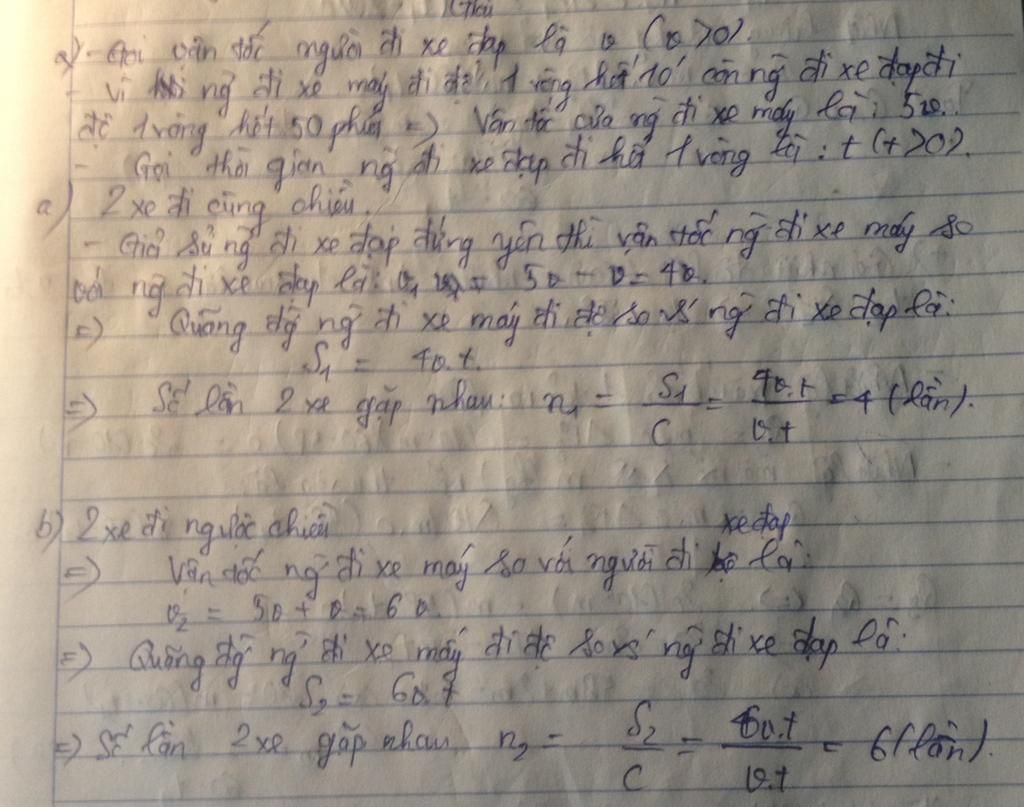 - Gọi vận tốc người đi xe đạp là v (v > 0).
- Vì ng đi xe máy đi đc 1 vòng hết 10' còn ng đi xe đạp đi
đc 1 vòng hết 50 phút => Vận tốc của ng đi xe máy là: 5v.
- Gọi thời gian ng đi xe đạp đi hết 1 vòng là: t (t > 0).
a) 2 xe đi cùng chiều.
- Giả sử ng đi xe đạp đứng yên thì vận tốc ng đi xe máy so
với ng đi xe đạp là: v₁ = 5v - v = 4v.
=> Quãng đg ng đi xe máy đi đc so vs ng đi xe đạp là:
S₁ = 4v.t.
=> Số lần 2 xe gặp nhau: n₁ = S₁/C = 4v.t/v.t = 4 (lần).
b) 2 xe đi ngược chiều
=> Vận tốc ng đi xe máy so với người đi xe đạp là:
v₂ = 5v + v = 6v.
=> Quãng đg ng đi xe máy đi đc so vs ng đi xe đạp là:
S₂ = 6v.t
=> Số lần 2 xe gặp nhau n₂ = S₂/C = 6v.t/v.t = 6 (lần).